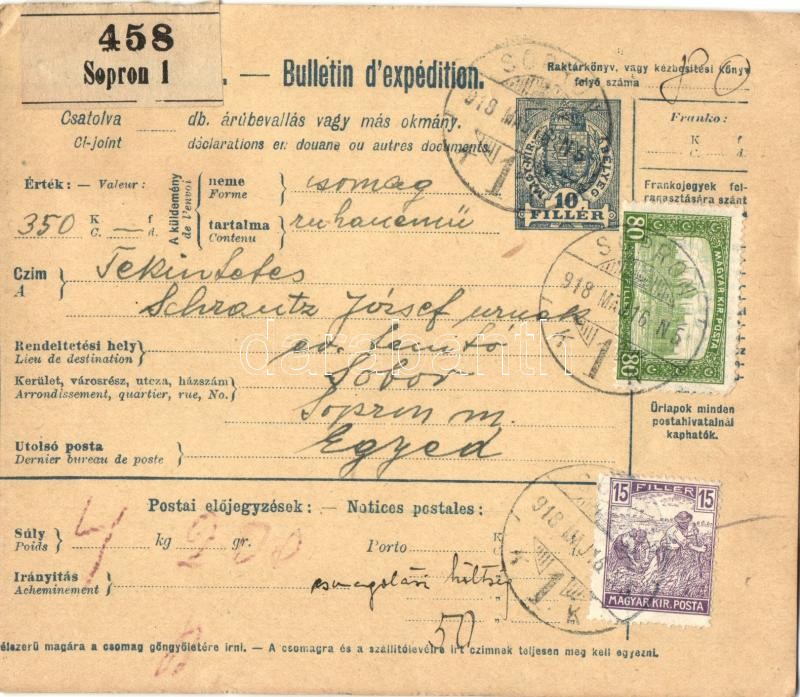 458
Sopron 1
— Bulletin d'expédition.
Raktárkönyv, vagy kézbesítési könyv
folyó száma
80
Csatolva db. árúbevallás vagy más okmány.
Ci-joint déclarations en douane ou autres documents.
Franko:
K f
C. d.
Frankojegyek fel-
ragasztására szánt
Érték: — Valeur:
350 K f
C. — d.
A küldemény
de l'envoi
neme csomag
Forme
tartalma ruhanemü
Contenu
MAGY. KIR. BÉLYEG
10
FILLÉR
SOPRON
918 MAJ N5
1
K
80
MAGYAR KIR. POSTA
FILLÉR
80
SOPRON
918 MAJ 16 N5
K 1
Czim Tekintetes
A Schrantz József urnak
Rendeltetési hely
Lieu de destination
ev. tanító
Kerület, városrész, utcza, házszám
Arrondissement, quartier, rue, No.
Sobor
Sopron m.
Utolsó posta Egyed
Dernier bureau de poste
Űrlapok minden
postahivatalnál
kaphatók.
darabanth
Postai előjegyzések: — Notices postales:
Súly 4 kg 200 gr.
Poids
Porto K
Irányítás
Acheminement
csomagolási költség
50
15 FILLÉR 15
MAGYAR KIR. POSTA
918 MAJ 16
K 1 K
élszerű magára a csomag göngyöletére írni. — A csomagra és a szállítólevélre írt czimnek teljesen meg kell egyezni.